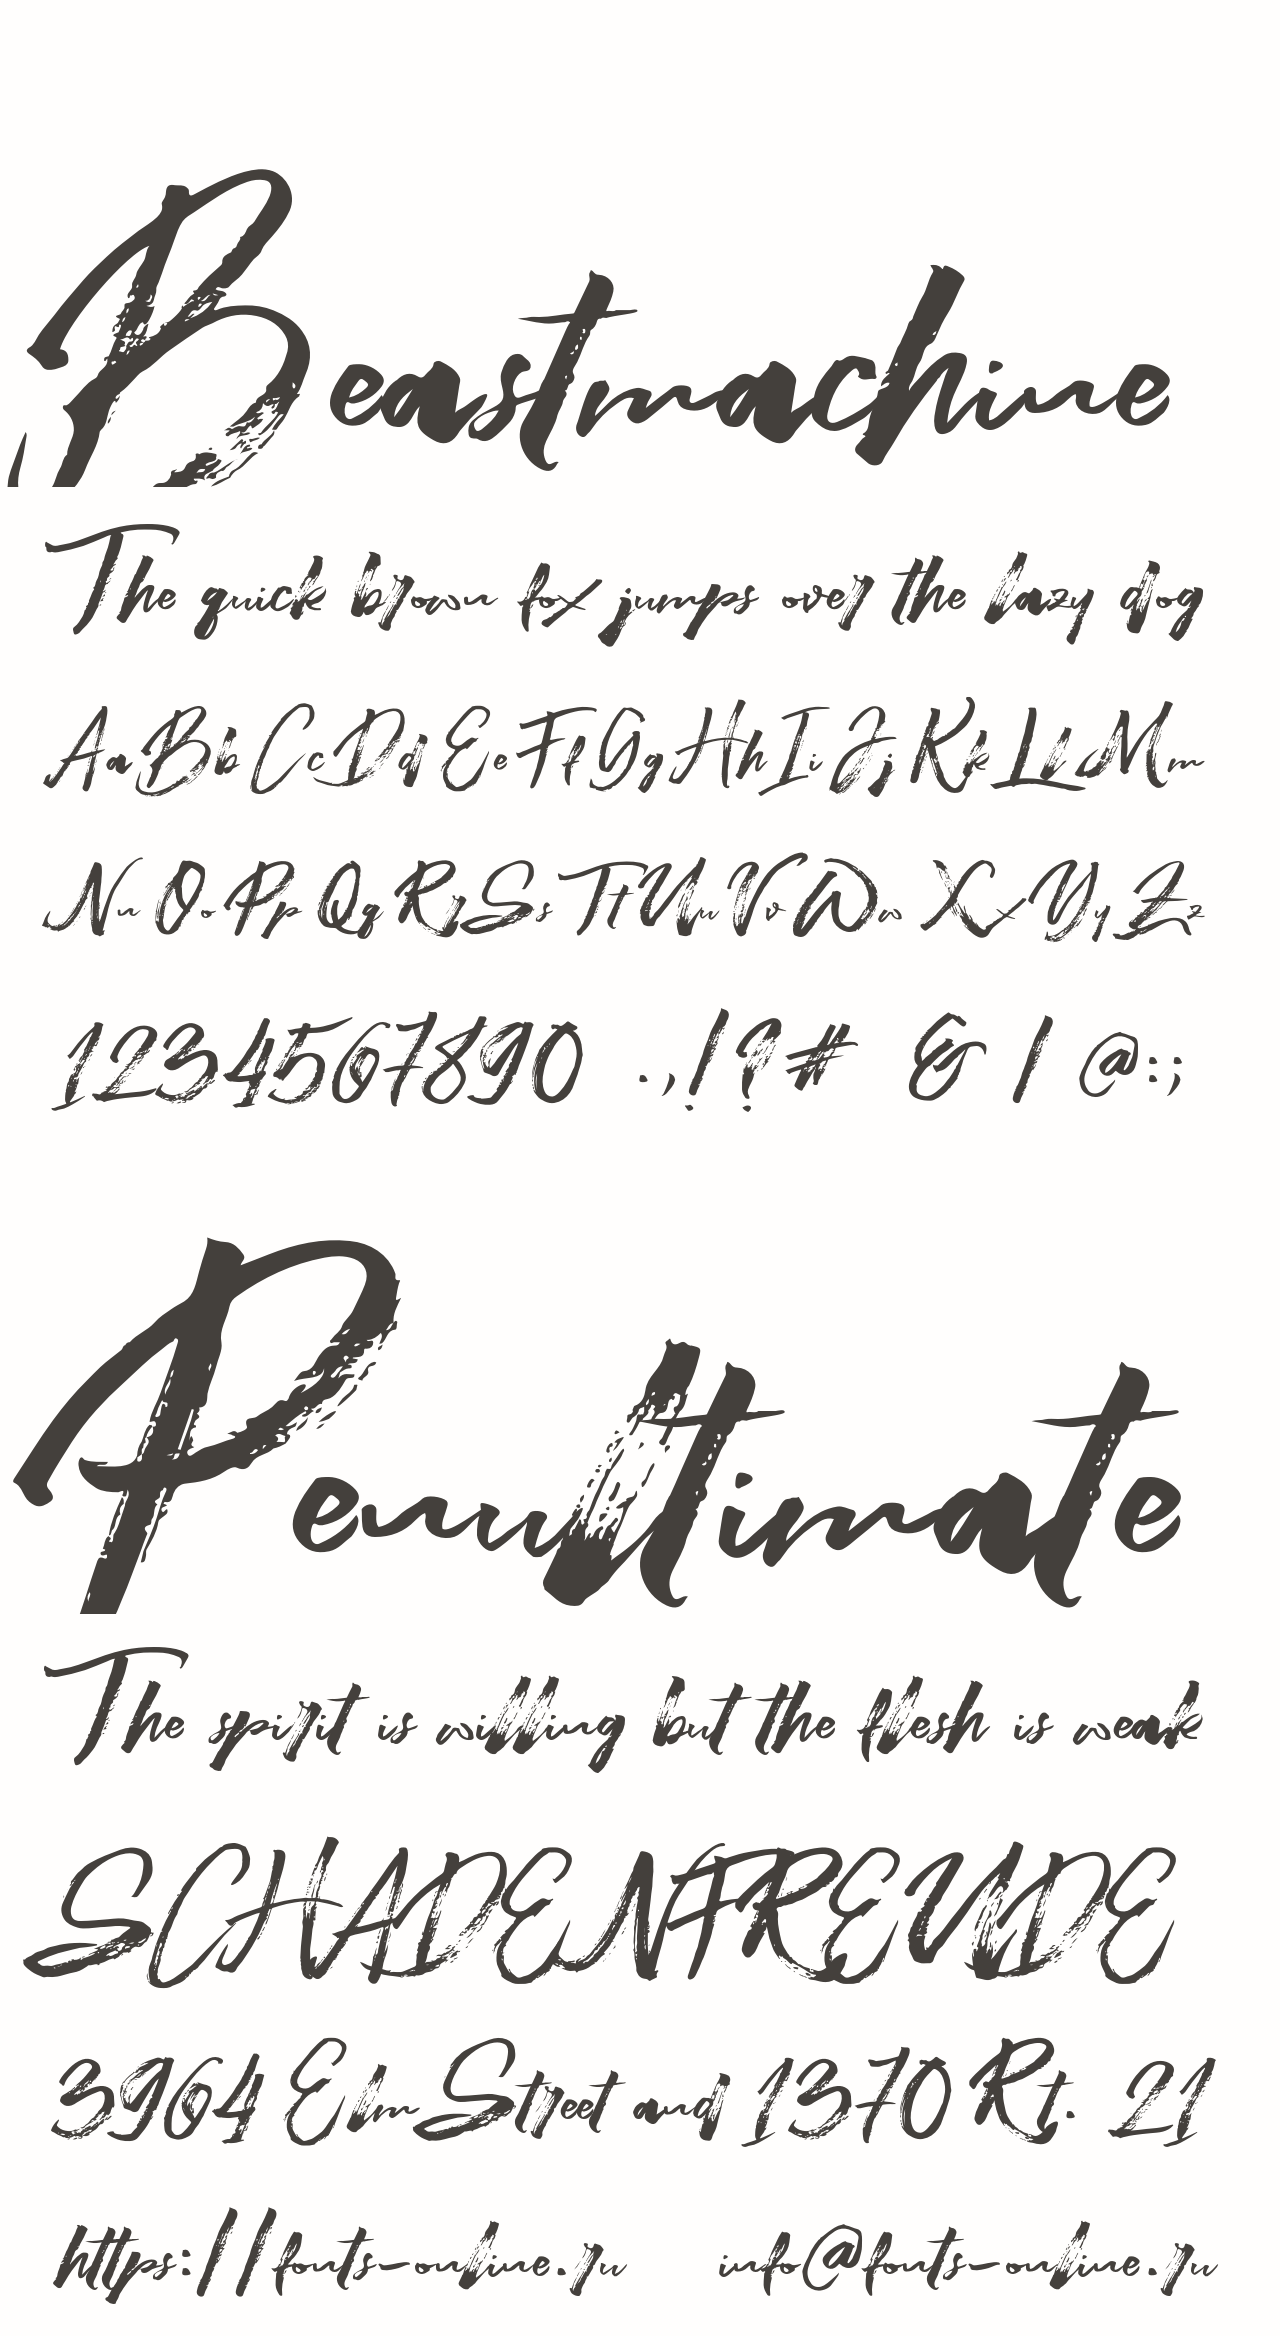 Beastmachine
The quick brown fox jumps over the lazy dog
AaBbCcDdEeFfGgHhIiJjKkLlMm
NnOoPpQqRrSsTtUuVvWwXxYyZz
1234567890 .,!?# & / @:;
Penultimate
The spirit is willing but the flesh is weak
SCHADENFREUDE
3964 Elm Street and 1370 Rt. 21
https://fonts-online.ru info@fonts-online.ru